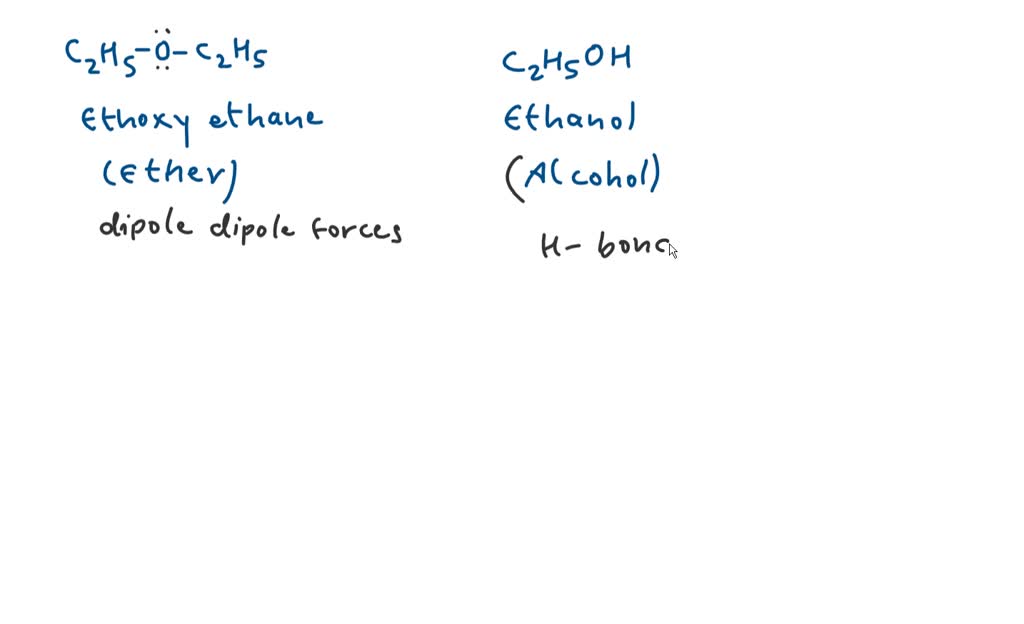 C₂H₅-Ö-C₂H₅
Ethoxy ethane
(Ether)
dipole dipole forces
C₂H₅OH
Ethanol
(Alcohol)
H- bonc